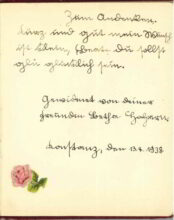 Zum Andenken.
Kurz und gut mein Wunsch
ist klein, Du sollst
glücklich sein.
Gewidmet von deiner
Freundin
Konstanz, den 13.4.1938